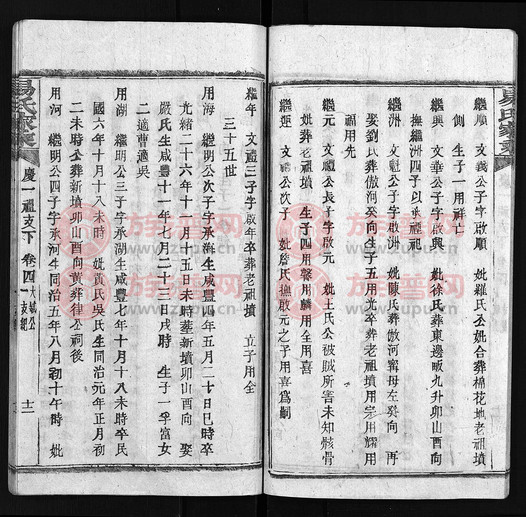 易氏家乘
繼順　文義公子字啟順　妣羅氏公妣合葬棉花地老祖墳
側　生子一用祥亡
繼興　文華公子字啟興　妣徐氏葬東邊畈九升卯山酉向
撫繼洲四子以承繼祖
繼洲　文禮公子字啟洲　妣陳氏葬傲河寄母左癸向　再
娶劉氏葬傲河癸向生子五用光卒葬老祖墳用宗用耀用
福用先
繼元　文禮公長子字啟元　妣王氏公被賊所害未知骸骨
妣葬老祖墳　生子四用
用麟用全用喜
繼運　文
公子字啟運　妣詹氏撫啟元之子用喜爲嗣
繼年　文禮三子字啟年卒葬老祖墳　立子用全
三十五世
用海　繼明公次子字承湖生咸豐四年五月二十日巳時卒
光緒二十六年十一月十五日未時葬新墳卯山酉向　娶
嚴氏生咸豐十一年七月二十三日戌時　生子一孚富女
二適曹適吳
用湖　繼明公三子字承湖生咸豐七年十月十八未時卒民
國六年十月十八未時　妣黃氏吳氏生同治元年正月初
二未時公葬新墳卯山酉向黃葬律公祠後
用河　繼明公四子字承河生同治五年八月初十午時　妣
易氏家乘　慶一祖支下　卷四
十一
族譜网
www.zupu.cn